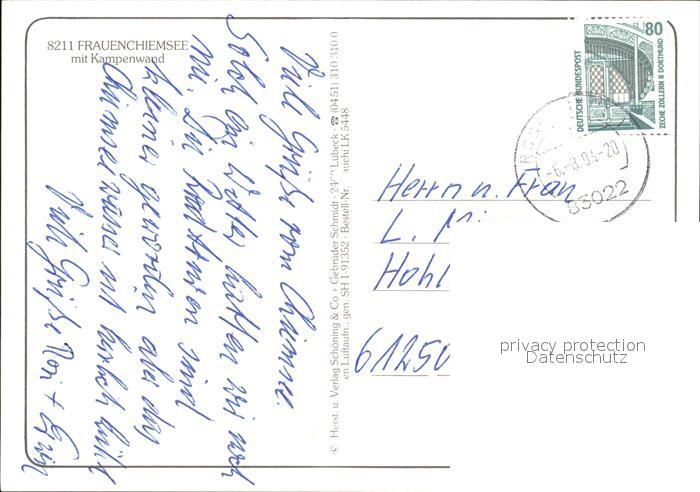 8211 FRAUENCHIEMSEE
mit Kampenwand
Viele Grüße vom Chiemsee.
Solch ein Wetter hatten wir noch
nie. Die Portionen sind
kleiner geworden aber der
Chiemsee ist herrlich
Viele Grüße
© Herst. u. Verlag Schöning & Co + Gebrüder Schmidt · Lübeck · ☎ (0451) 310 310 0
en Luftaufn., gen. SH 1-91352 · Bestell-Nr. LK 5448
80
DEUTSCHE BUNDESPOST
ZECHE ZOLLERN II DORTMUND
83022
Herrn u. Frau
L.
Hohl
61250
privacy protection
Datenschutz